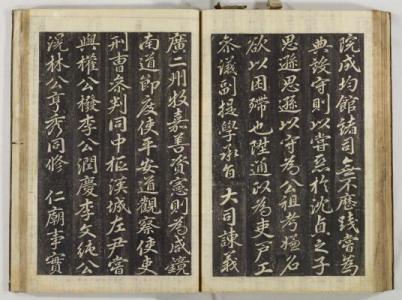 院成均館諸司無不歷踐嘗爲
典設守則以嘗惡於沈貞之子
思遜思遜以守爲公祖考名
欲以困滯也陞通政爲吏戶工
參議副提學承旨 大司諫義
廣二州牧嘉善資憲則爲咸鏡
南道節度使平安道觀察使吏
刑曹參判同中樞漢城左尹嘗
與權公橃李公潤慶李文純公
滉林公亨秀同修 仁廟事實